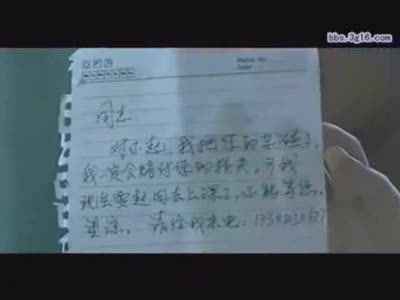 bbs.3g16.com
Memo No.
Date
同志
对不起,我把你的车了,
我会赔付你的损失,可我
现在要赶回去上课了,不能等您,
望谅。请给我来电。